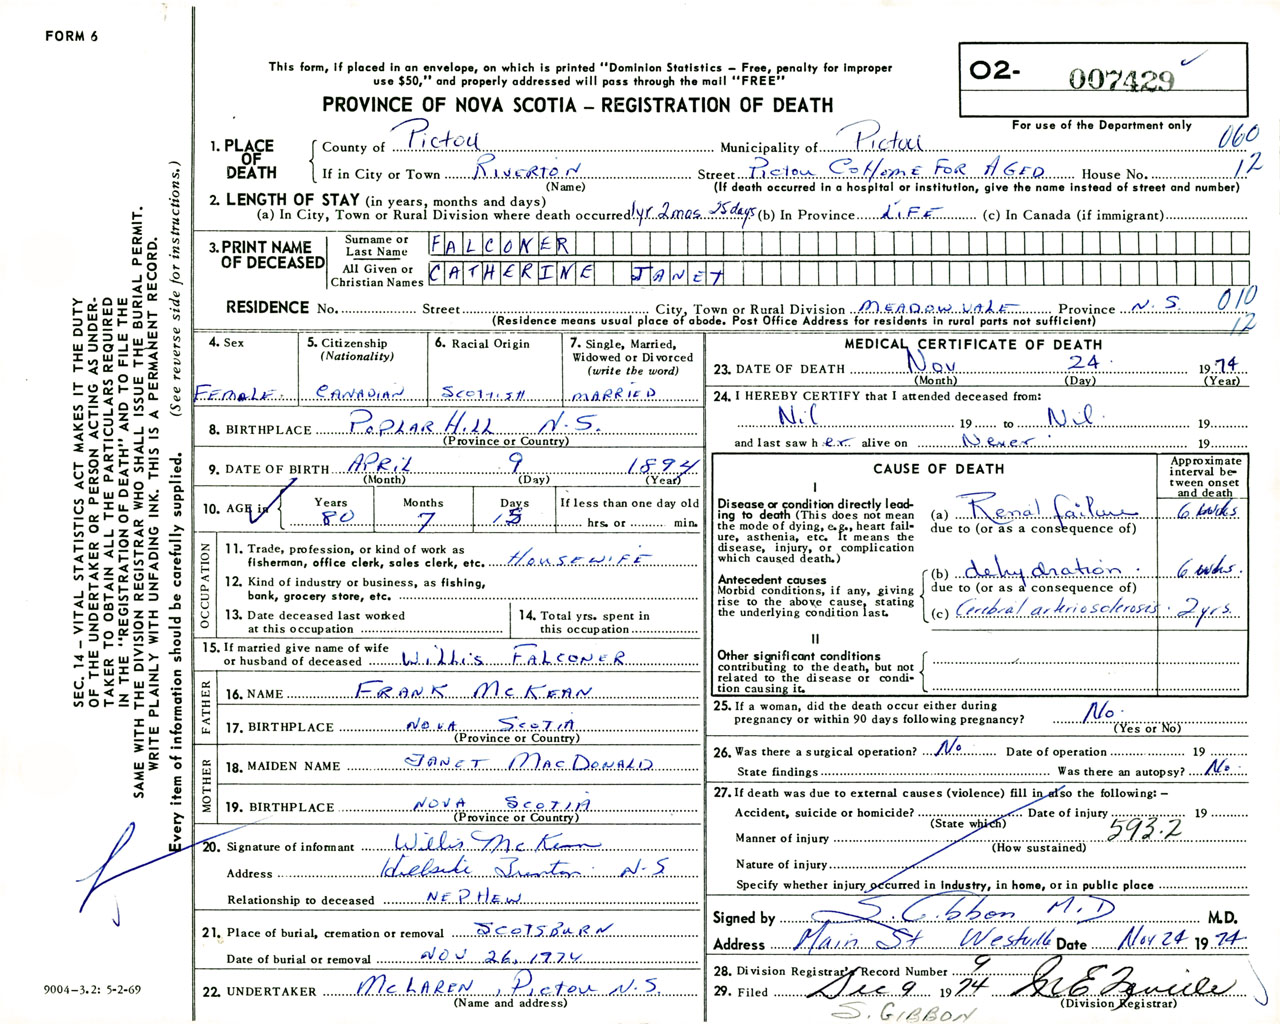 FORM 6
This form, if placed in an envelope, on which is printed "Dominion Statistics – Free, penalty for improper
use $50," and properly addressed will pass through the mail "FREE"
PROVINCE OF NOVA SCOTIA – REGISTRATION OF DEATH
O2- 007429
For use of the Department only
060
12
1. PLACE OF DEATH
County of Pictou Municipality of Pictou
If in City or Town Riverton Street Pictou Co Home For Aged House No.
(Name) (If death occurred in a hospital or institution, give the name instead of street and number)
2. LENGTH OF STAY (in years, months and days)
(a) In City, Town or Rural Division where death occurred 1yr 2mos 25days (b) In Province LIFE (c) In Canada (if immigrant)
3. PRINT NAME OF DECEASED
Surname or Last Name FALCONER
All Given or Christian Names CATHERINE JANET
RESIDENCE No. Street City, Town or Rural Division MEADOWVALE Province N.S.
(Residence means usual place of abode. Post Office Address for residents in rural parts not sufficient)
010
12
4. Sex
FEMALE
5. Citizenship
(Nationality)
CANADIAN
6. Racial Origin
SCOTTISH
7. Single, Married,
Widowed or Divorced
(write the word)
MARRIED
8. BIRTHPLACE POPLAR HILL N.S.
(Province or Country)
9. DATE OF BIRTH APRIL 9 1894
(Month) (Day) (Year)
10. AGE in Years 80 Months 7 Days 15 If less than one day old
hrs. or min.
OCCUPATION
11. Trade, profession, or kind of work as
fisherman, office clerk, sales clerk, etc. HOUSEWIFE
12. Kind of industry or business, as fishing,
bank, grocery store, etc.
13. Date deceased last worked
at this occupation
14. Total yrs. spent in
this occupation
15. If married give name of wife
or husband of deceased WILLIS FALCONER
FATHER
16. NAME FRANK McKEAN
17. BIRTHPLACE NOVA SCOTIA
(Province or Country)
MOTHER
18. MAIDEN NAME JANET MACDONALD
19. BIRTHPLACE NOVA SCOTIA
(Province or Country)
20. Signature of informant Willis McKean
Address Hillside Trenton N-S
Relationship to deceased NEPHEW
21. Place of burial, cremation or removal SCOTSBURN
Date of burial or removal NOV 26, 1974
22. UNDERTAKER McLAREN, Pictou N.S.
(Name and address)
MEDICAL CERTIFICATE OF DEATH
23. DATE OF DEATH Nov 24 1974
(Month) (Day) (Year)
24. I HEREBY CERTIFY that I attended deceased from:
Nil 19 to Nil 19
and last saw her alive on Never 19
CAUSE OF DEATH
Approximate interval between onset and death
I
Disease or condition directly leading to death (This does not mean the mode of dying, e.g., heart failure, asthenia, etc. It means the disease, injury, or complication which caused death.)
(a) Renal failure 6 weeks
due to (or as a consequence of)
Antecedent causes
Morbid conditions, if any, giving rise to the above cause, stating the underlying condition last.
(b) dehydration 6 weeks.
due to (or as a consequence of)
(c) Cerebral arteriosclerosis 2 yrs.
II
Other significant conditions
contributing to the death, but not related to the disease or condition causing it.
25. If a woman, did the death occur either during
pregnancy or within 90 days following pregnancy? No
(Yes or No)
26. Was there a surgical operation? No Date of operation 19
State findings Was there an autopsy? No
27. If death was due to external causes (violence) fill in also the following: –
Accident, suicide or homicide? Date of injury 19
(State which)
Manner of injury 593.2
(How sustained)
Nature of injury
Specify whether injury occurred in Industry, in home, or in public place
Signed by S. Gibbon M.D M.D.
Address Main St Westville Date Nov 24 1974
28. Division Registrar's Record Number 9
29. Filed Dec 9 1974
(Division Registrar)
S. GIBBON
SEC. 14 – VITAL STATISTICS ACT MAKES IT THE DUTY
OF THE UNDERTAKER OR PERSON ACTING AS UNDER-
TAKER TO OBTAIN ALL THE PARTICULARS REQUIRED
IN THE "REGISTRATION OF DEATH" AND TO FILE THE
SAME WITH THE DIVISION REGISTRAR WHO SHALL ISSUE THE BURIAL PERMIT.
WRITE PLAINLY WITH UNFADING INK. THIS IS A PERMANENT RECORD.
Every item of information should be carefully supplied. (See reverse side for instructions.)
9004-3.2: 5-2-69